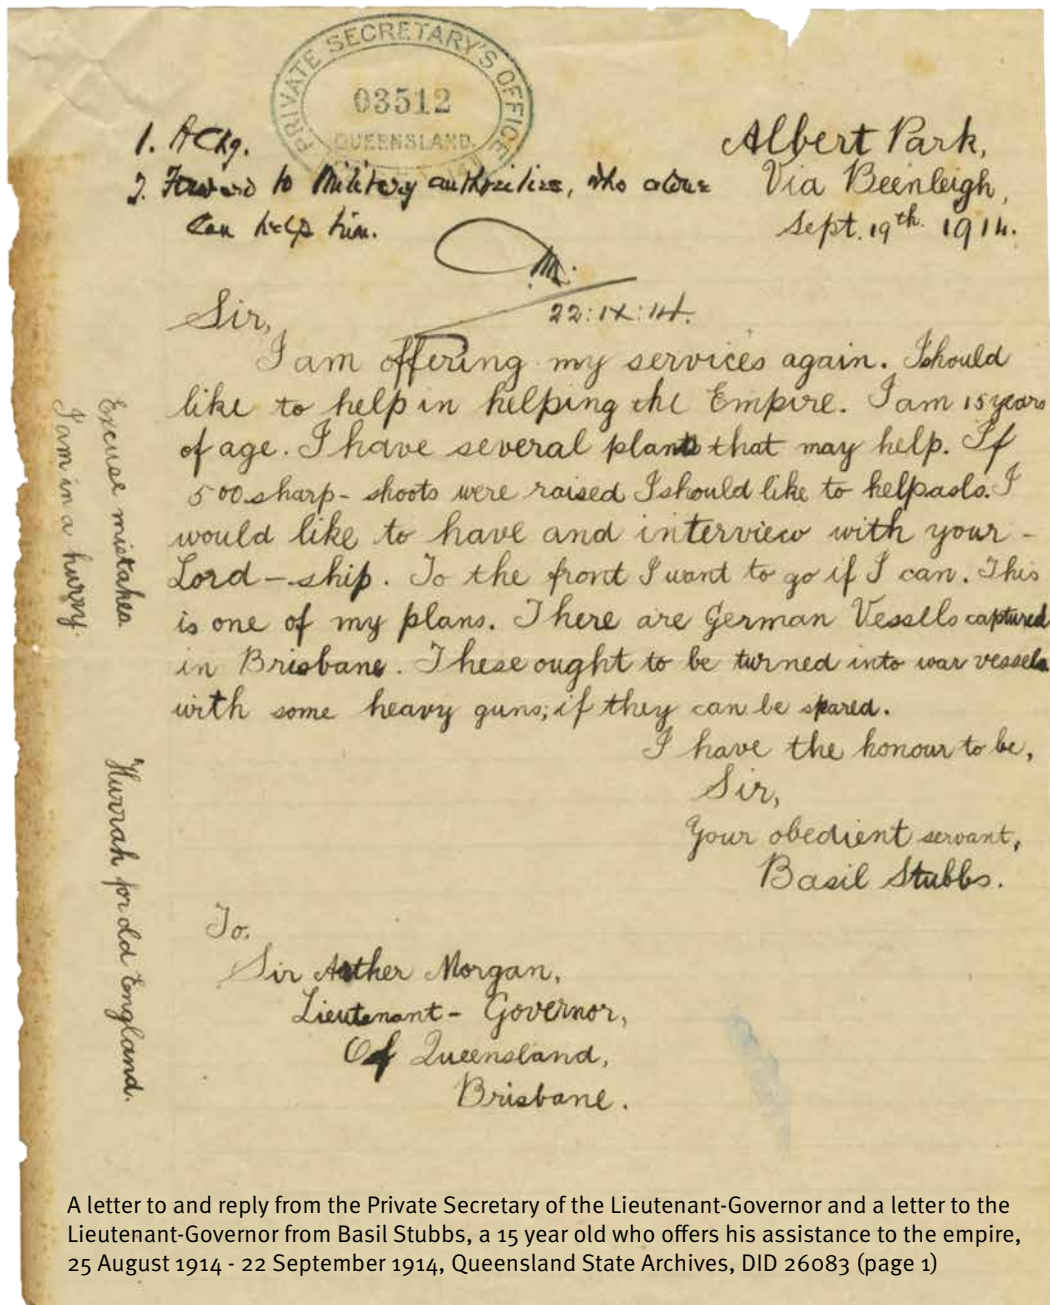 PRIVATE SECRETARY'S OFFICE
03512
QUEENSLAND.
1. Ackg.
2. Forward to Military authorities, who alone
can help him.
M.
22:IX:14.
Albert Park,
Via Beenleigh,
Sept. 19th. 1914.
Sir,
I am offering my services again. I should
like to help in helping the Empire. I am 15 years
of age. I have several plans that may help. If
500 sharp-shoots were raised I should like to help aslo. I
would like to have and interview with your-
Lord-ship. To the front I want to go if I can. This
is one of my plans. There are German Vessells captured
in Brisbane. These ought to be turned into war vessels
with some heavy guns; if they can be spared.
I have the honour to be,
Sir,
Your obedient servant,
Basil Stubbs.
To.
Sir Arther Morgan,
Lieutenant-Governor,
Of Queensland,
Brisbane.
Excuse mistakes
I am in a hurry.
Hurrah for old England.
A letter to and reply from the Private Secretary of the Lieutenant-Governor and a letter to the
Lieutenant-Governor from Basil Stubbs, a 15 year old who offers his assistance to the empire,
25 August 1914 - 22 September 1914, Queensland State Archives, DID 26083 (page 1)